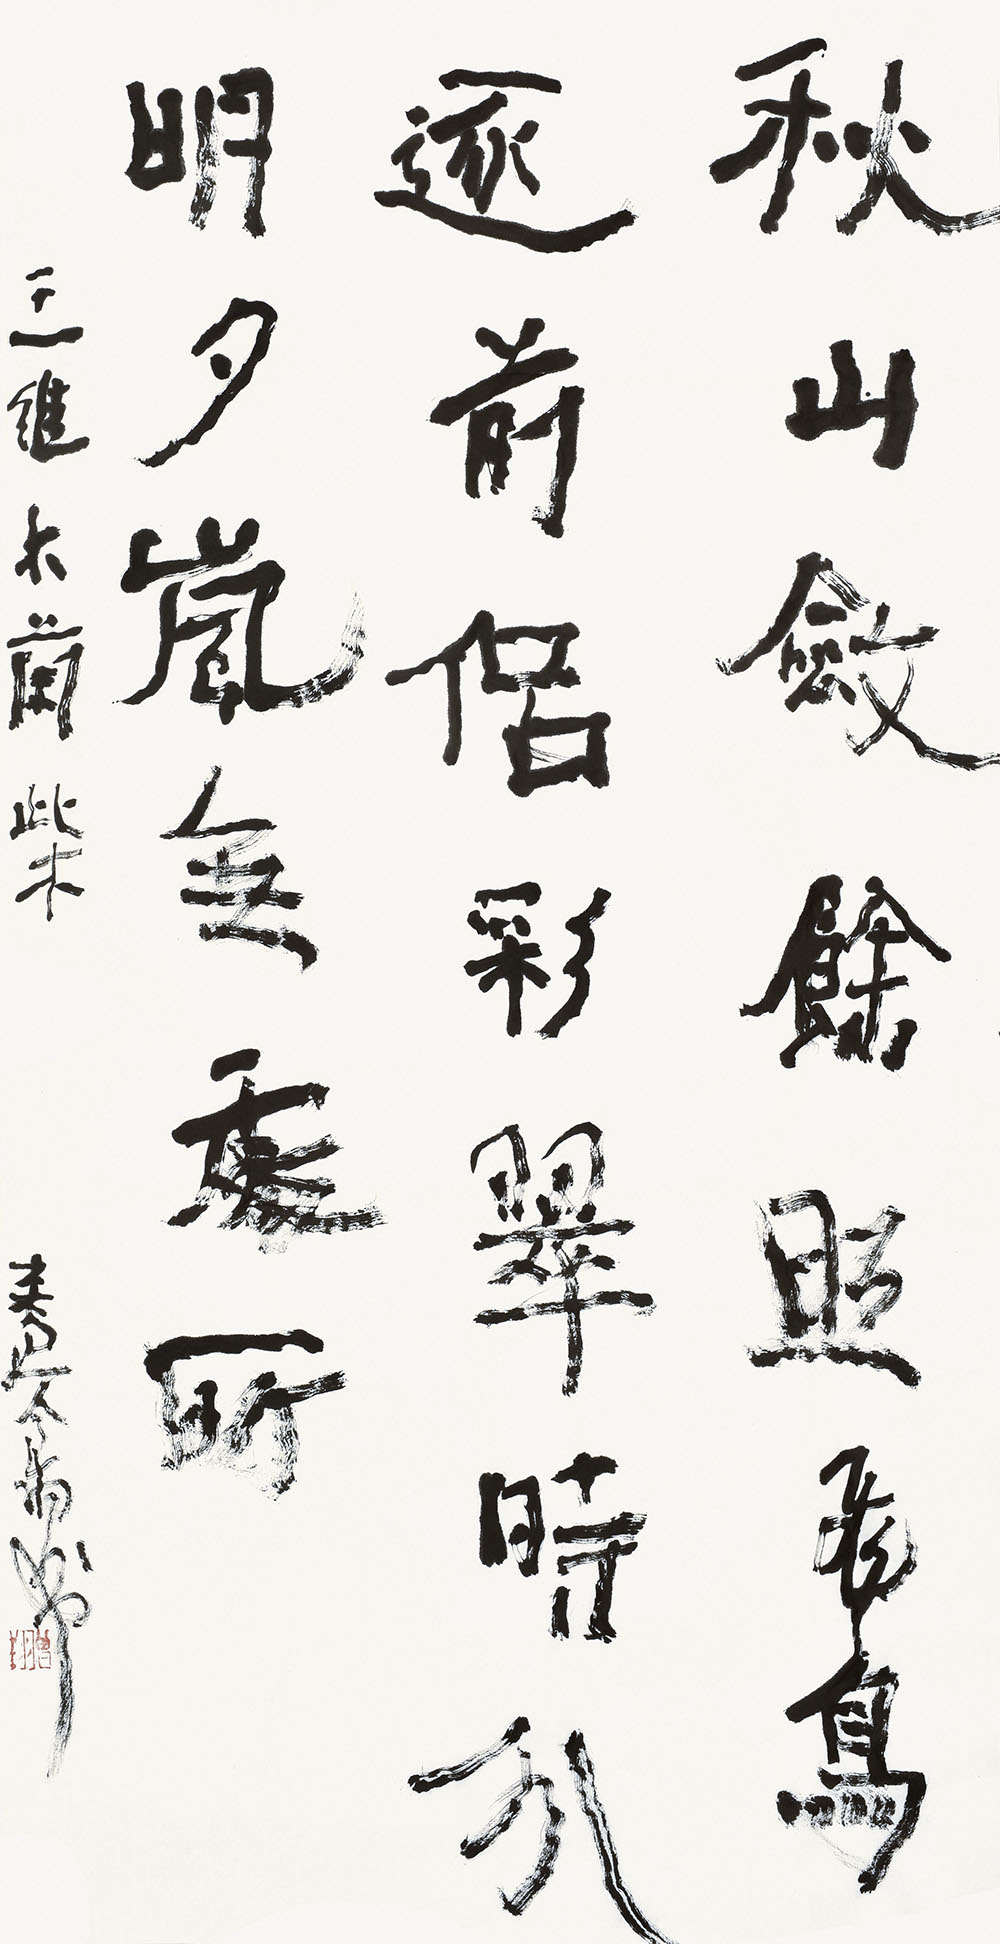 秋山斂餘照飛鳥
逐前侣彩翠時分
明夕嵐無處所
王維木蘭柴
曾翔